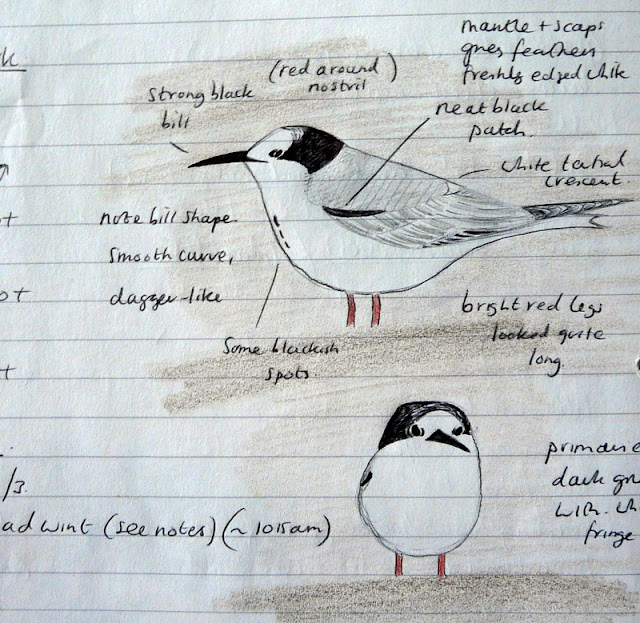 mantle + scaps
grey feathers
freshly edged white
(red around
nostril)
strong black
bill
neat black
patch.
white tertial
crescent.
note bill shape
smooth curve,
dagger-like
bright red legs
looked quite
long.
Some blackish
spots.
primari
dark gre
with
fringe
/3.
ad wint (see notes) (~ 1015am)